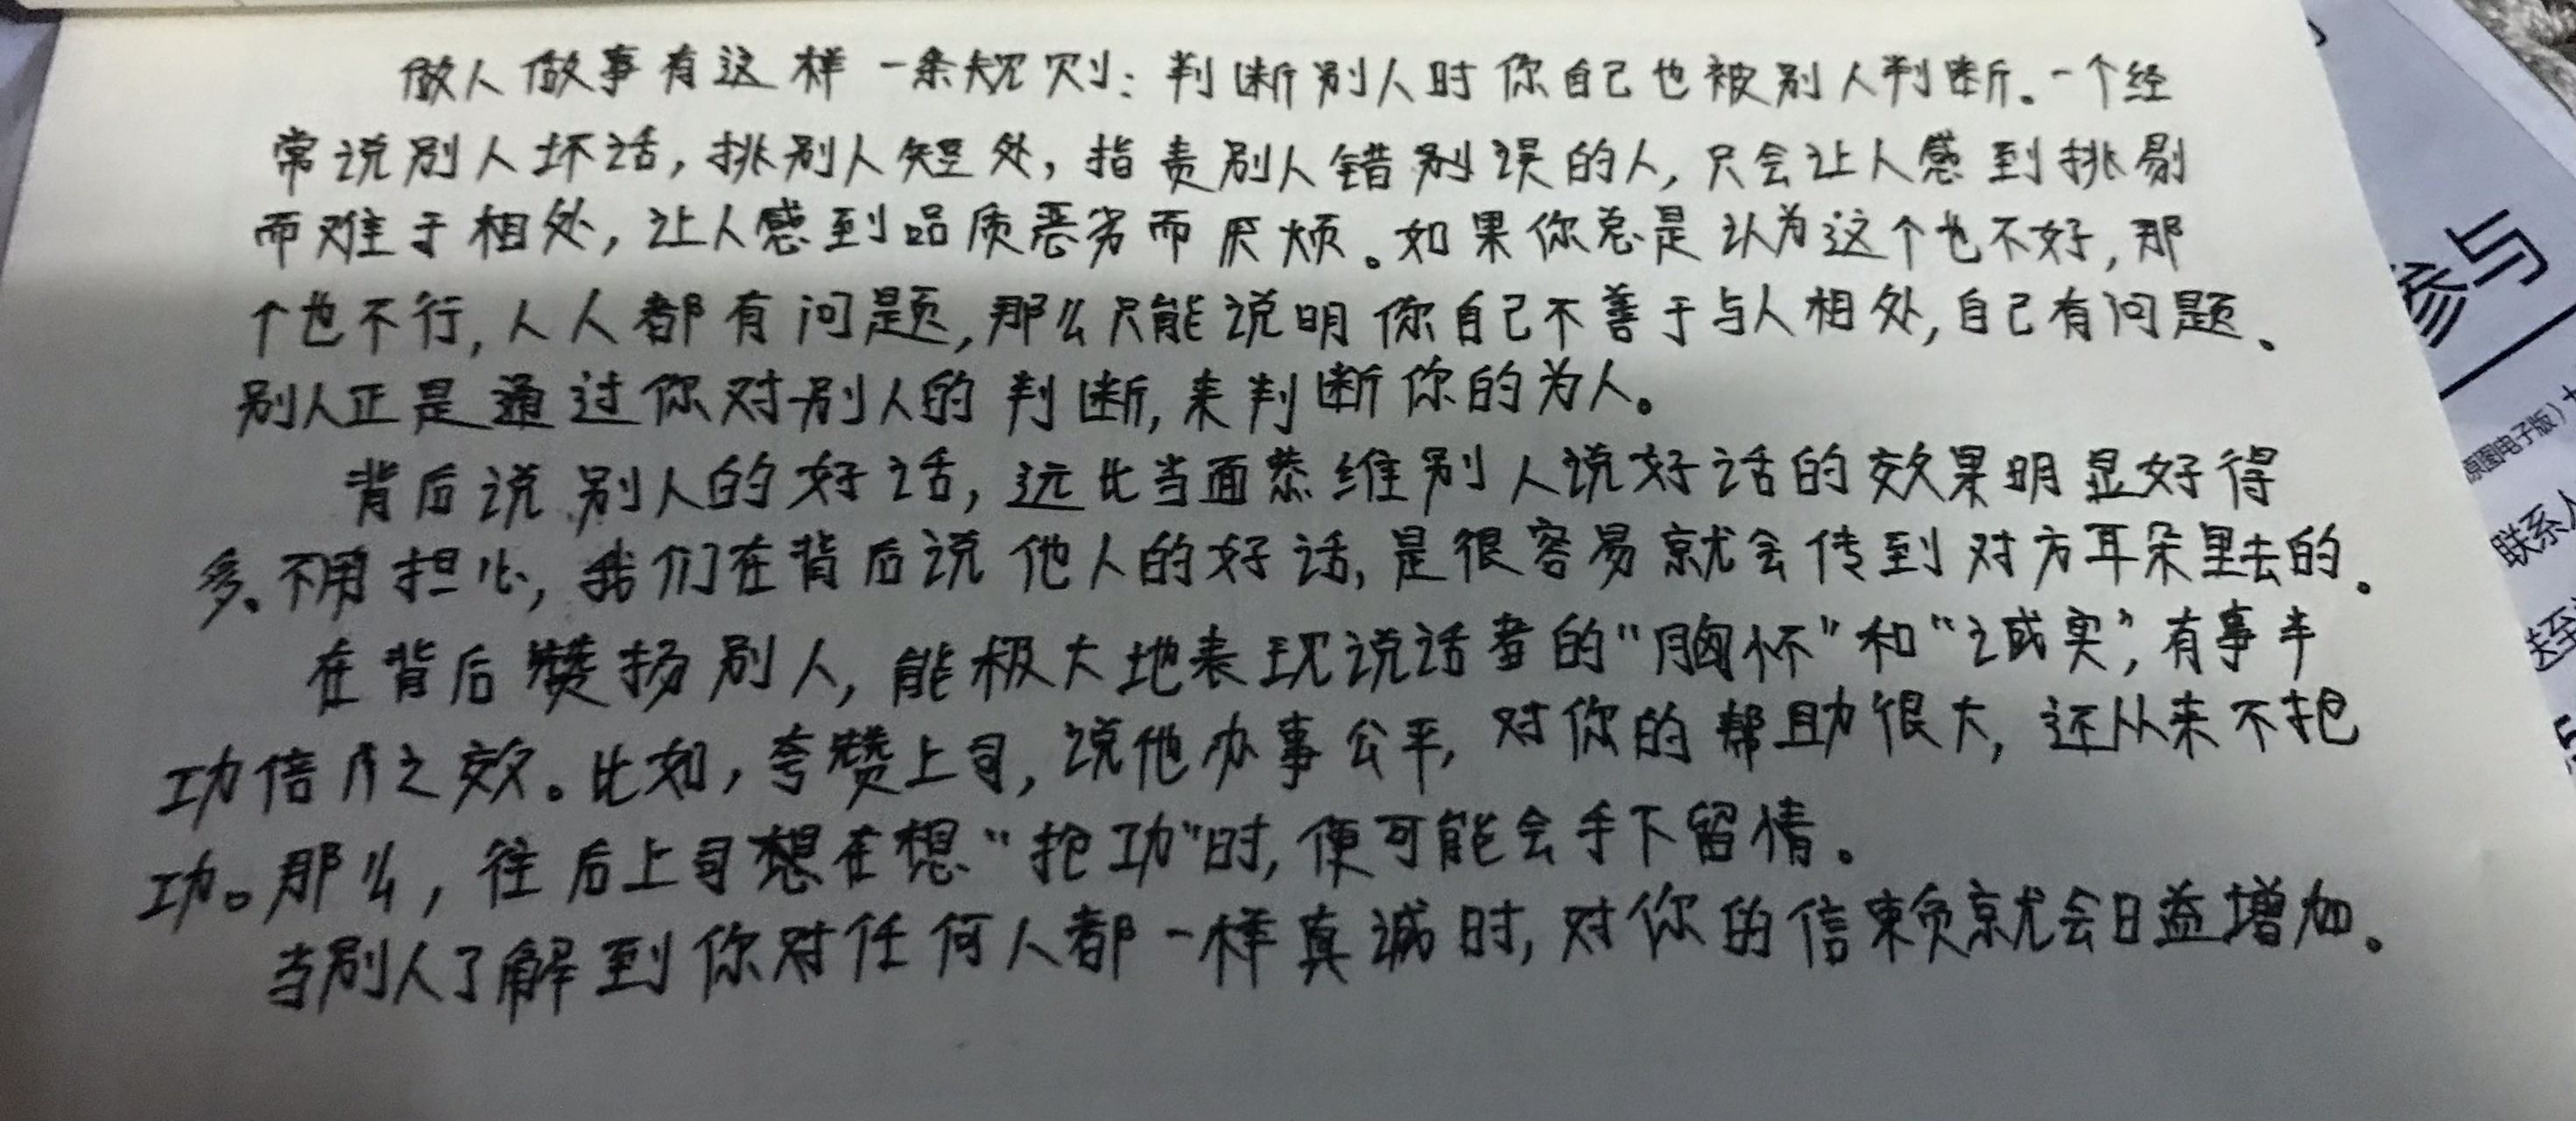 做人做事有这样一条规则：判断别人时你自己也被别人判断。一个经
常说别人坏话，挑别人短处，指责别人错别误的人，只会让人感到挑剔
而难于相处，让人感到品质恶劣而厌烦。如果你总是认为这个也不好，那
个也不行，人人都有问题，那么只能说明你自己不善于与人相处，自己有问题、
别人正是通过你对别人的判断，来判断你的为人。
背后说别人的好话，远比当面恭维别人说好话的效果明显好得
多、不用担心，我们在背后说他人的好话，是很容易就会传到对方耳朵里去的。
在背后赞扬别人，能极大地表现说话者的“胸怀”和“诚实”，有事半
功倍之效。比如，夸赞上司，说他办事公平，对你的帮助很大，还从来不抢
功。那么，往后上司想在想“抢功”时，便可能会手下留情。
当别人了解到你对任何人都一样真诚时，对你的信赖就会日益增加。
参与
原图电子版）
联系人
送至